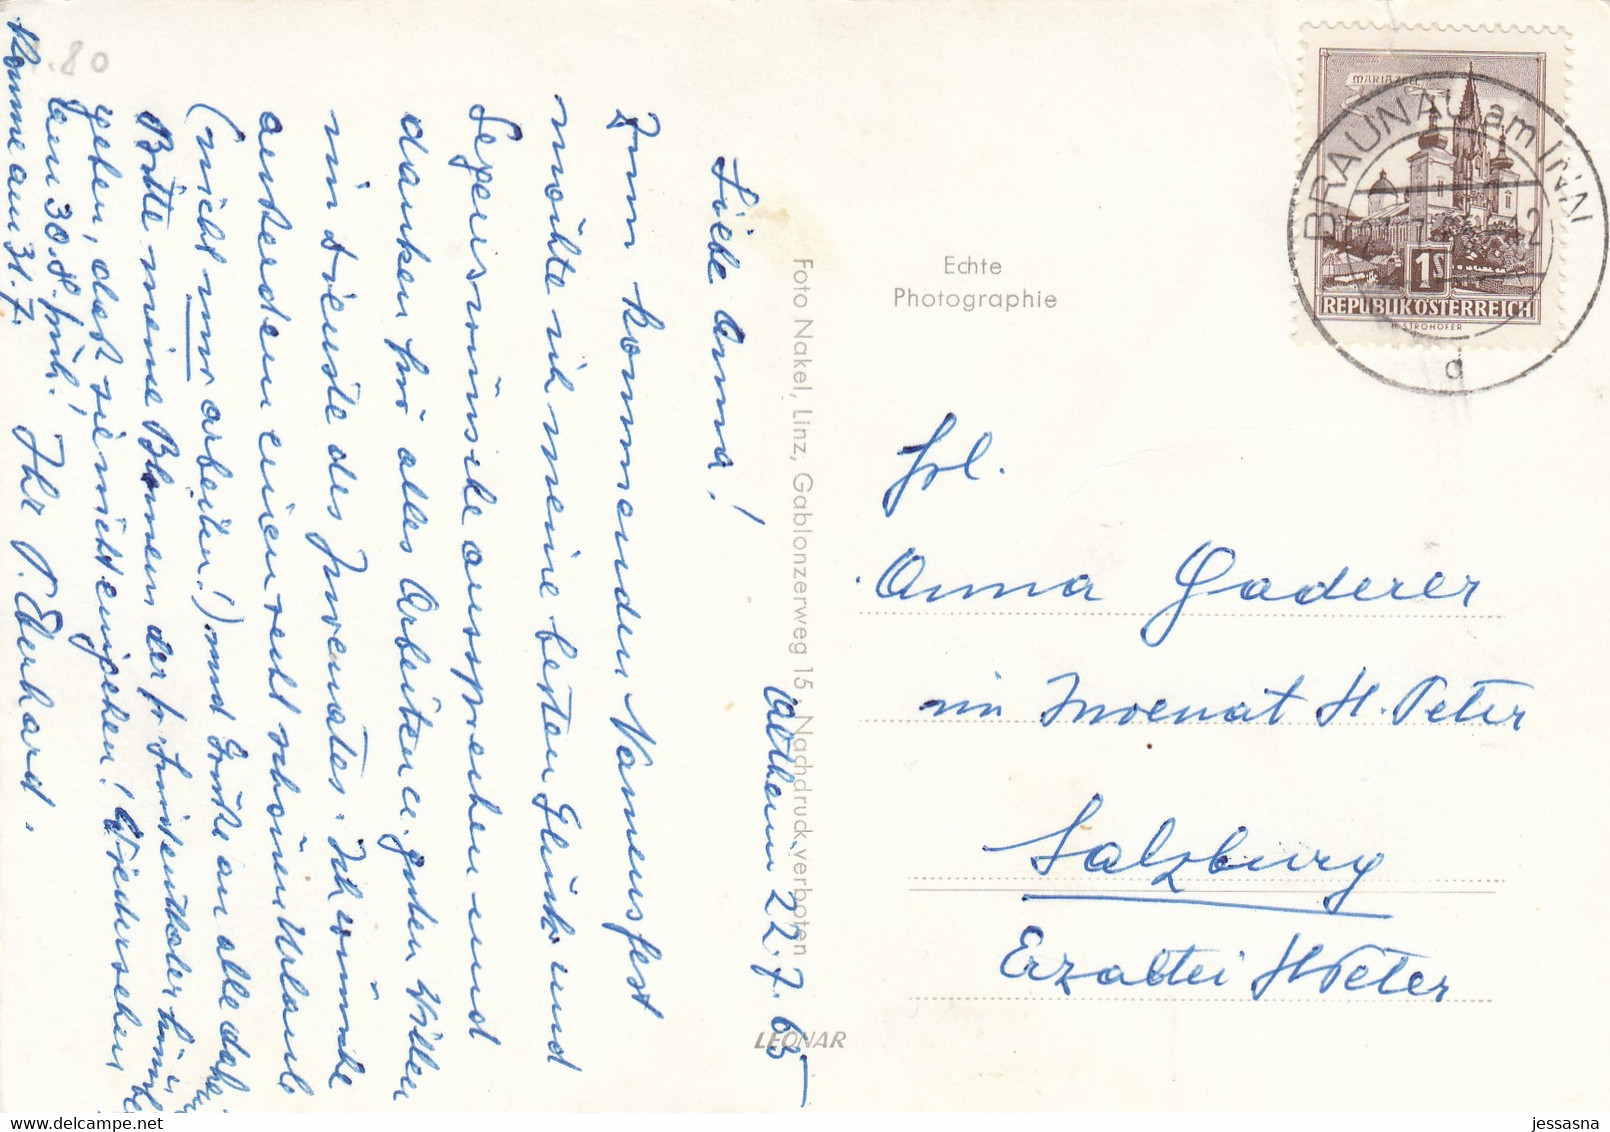 1.80
Altheim 22.7.65
Liebe Anna!
Zum kommenden Namensfest
möchte ich meine besten Glück- und
Segenswünsche aussprechen und
danken für alles Arbeiten u. guten Willen
im Dienste des Juvenates. Ich wünsche
außerdem einen recht schönen Urlaub
(nicht nur arbeiten!) und Grüße an alle daheim
Bitte meine Blumen der fr.
geben, daß sie nicht eingehen! Wiedersehen
am 30. 8. früh!
Komme am 31.7. Ihr P. Eberhard.
Foto Nakel, Linz, Gablonzerweg 15, Nachdruck verboten
LEONAR
Echte
Photographie
MARIAZELL
1S
REPUBLIK ÖSTERREICH
H. STROHOFER
BRAUNAU am INN
d
Frl.
Anna Gaderer
im Juvenat St. Peter
Salzburg
Erzabtei St Peter
jessasna